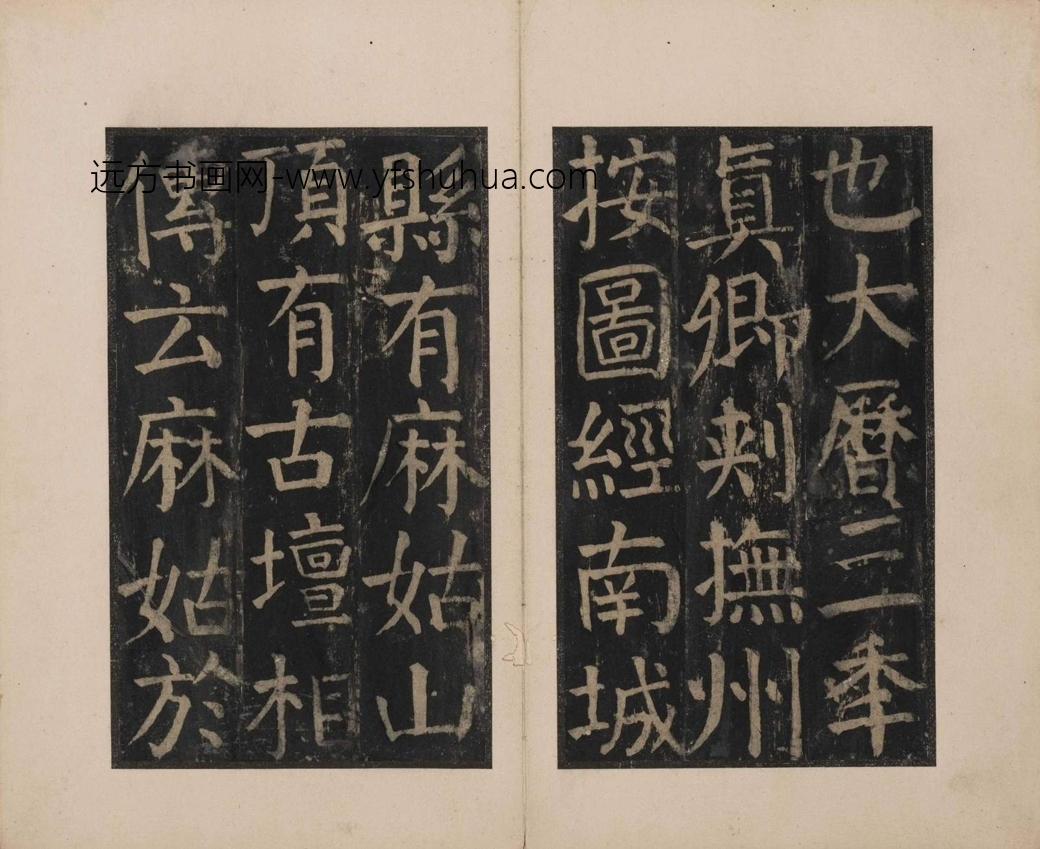 也大曆三年
真卿刺撫州
按圖經南城
縣有麻姑山
頂有古壇相
傳云麻姑於
远方书画网-www.yfshuhua.com